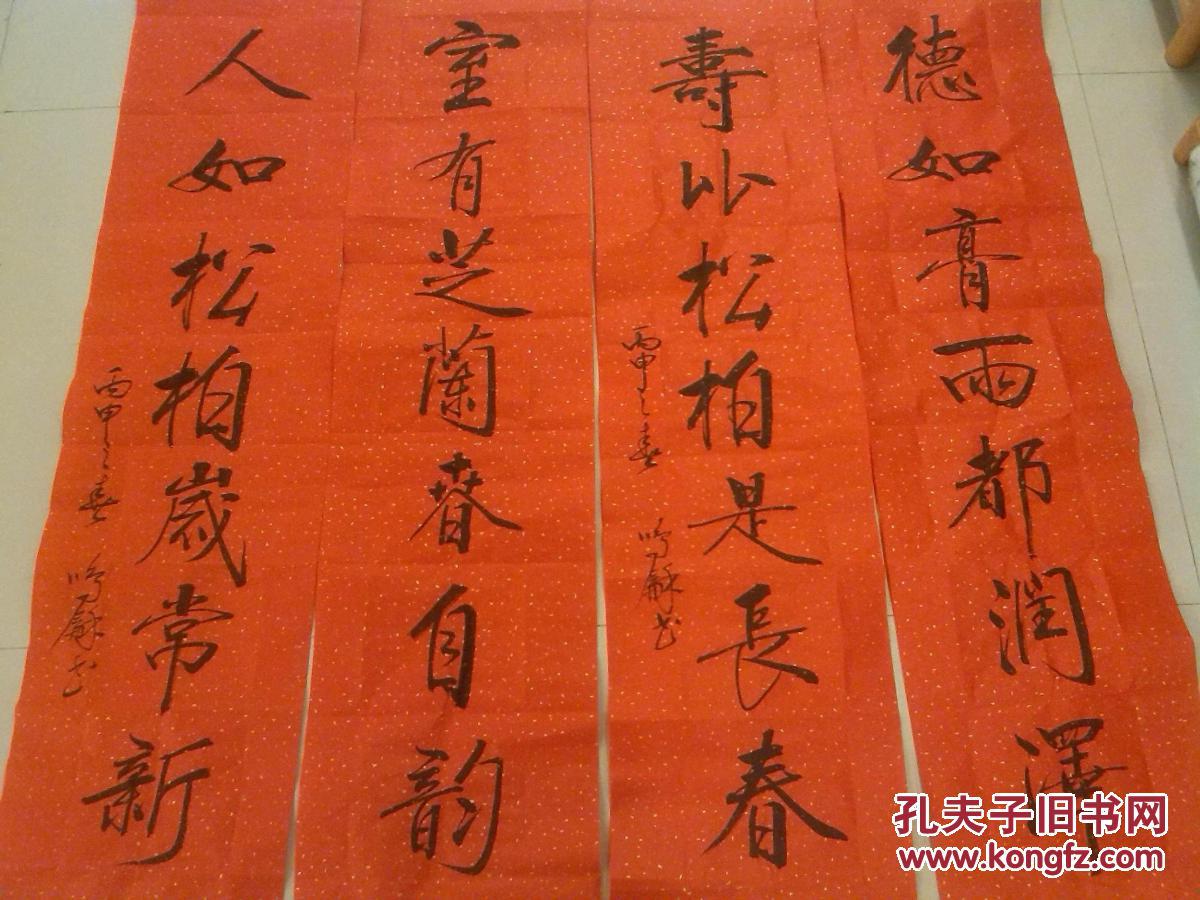 德如膏雨都润澤
壽比松柏是長春
丙申之春 鸣龢书
室有芝蘭春自韵
人如松柏歲常新
丙申之春 鸣龢书
孔夫子旧书网
www.kongfz.com